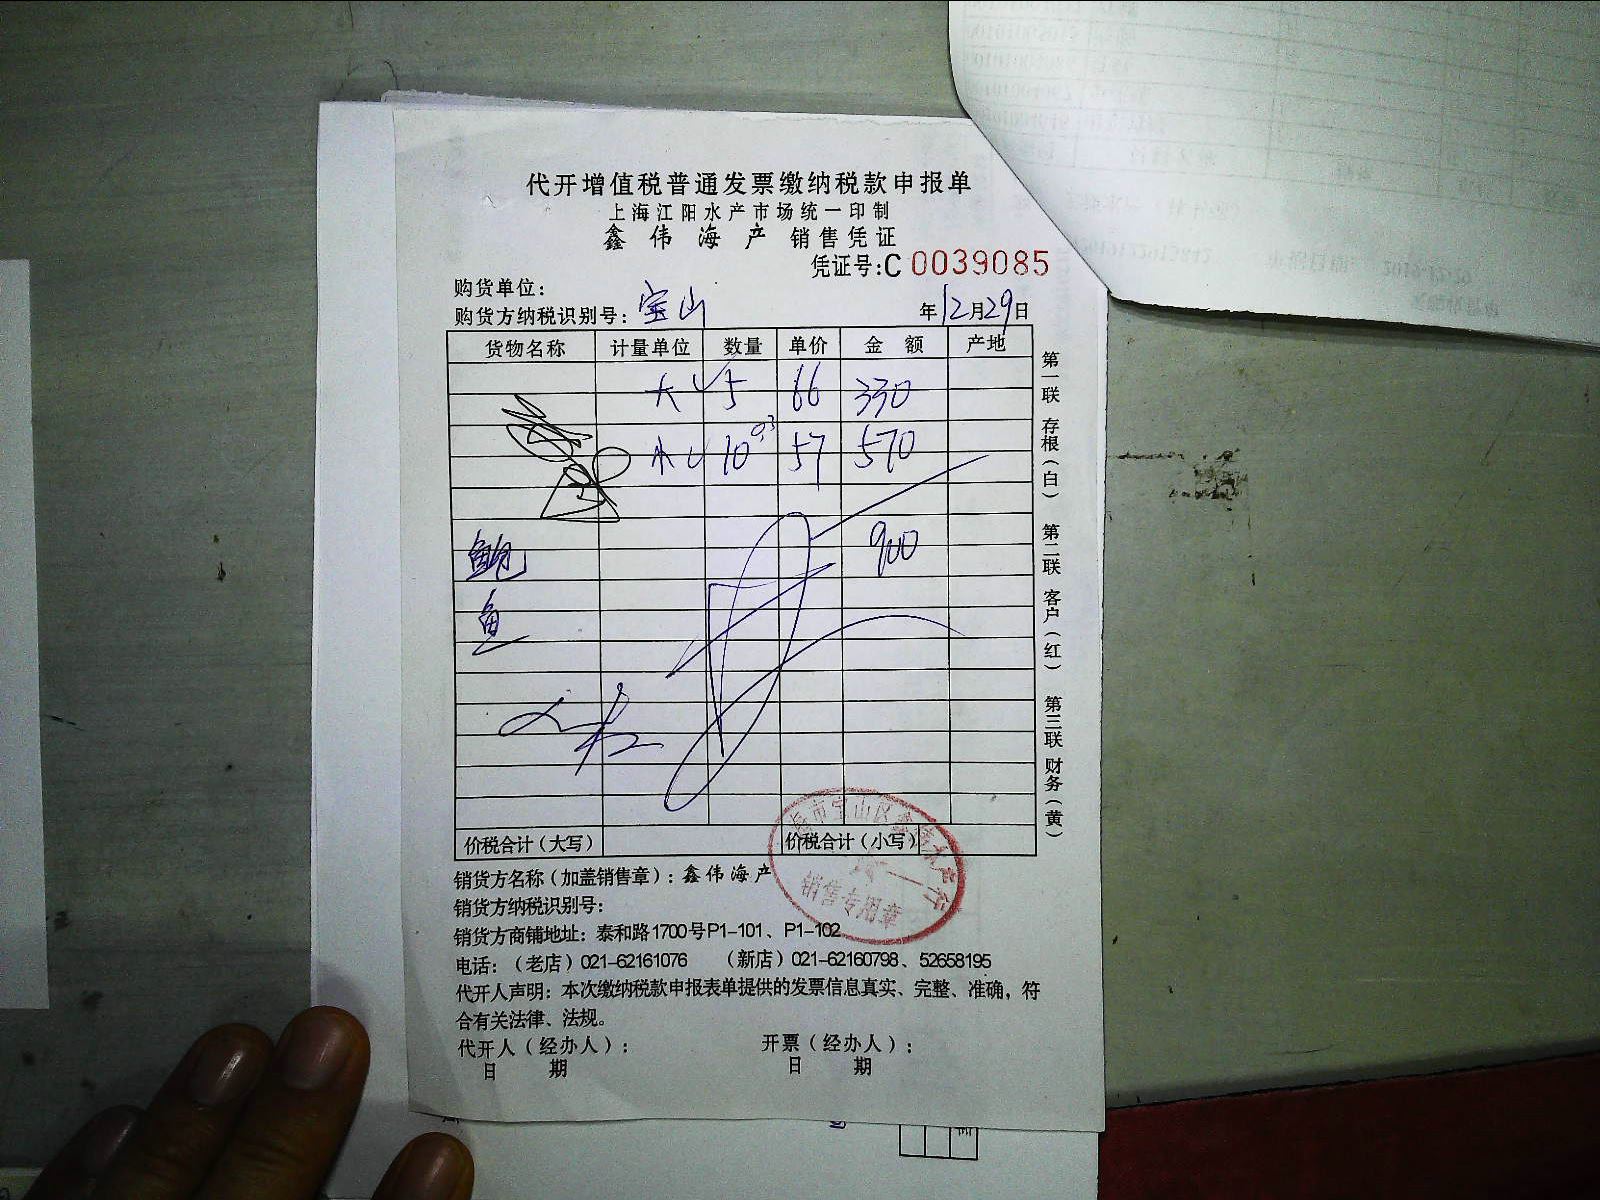 代开增值税普通发票缴纳税款申报单
上海江阳水产市场统一印制
鑫伟海产 销售凭证
凭证号:C 0039085
购货单位:
购货方纳税识别号: 宝山 年12月29日
货物名称 计量单位 数量 单价 金额 产地
大 5 66 330
小 10 57 570
900
鲍
鱼
价税合计(大写) 价税合计(小写)
销货方名称(加盖销售章): 鑫伟海产
销货方纳税识别号:
销货方商铺地址: 泰和路1700号P1-101、P1-102
电话: (老店) 021-62161076 (新店) 021-62160798、52658195
代开人声明: 本次缴纳税款申报表单提供的发票信息真实、完整、准确, 符
合有关法律、法规。
代开人(经办人): 开票(经办人):
日 期 日 期
第一联 存根(白) 第二联 客户(红) 第三联 财务(黄)
市宝山区鑫伟水产行
销售专用章